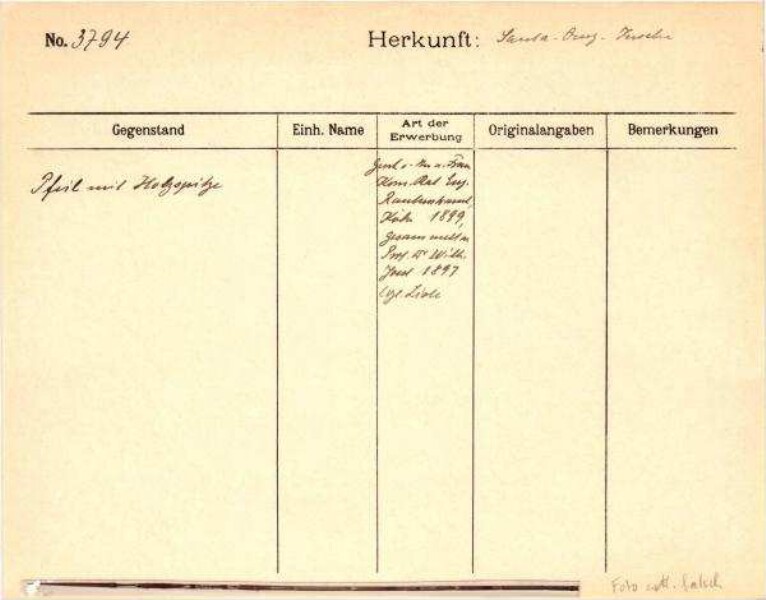 No. 3794
Herkunft: Santa-Cruz-Inseln
Gegenstand
Einh. Name
Art der Erwerbung
Originalangaben
Bemerkungen
Pfeil mit Holzspitze
Gesch. v. u. Frau
Kom. Rat Eug.
Rautenstrauch
Köln 1899,
gesammelt v.
Prof. Dr Wilh.
Joest 1897
Foto